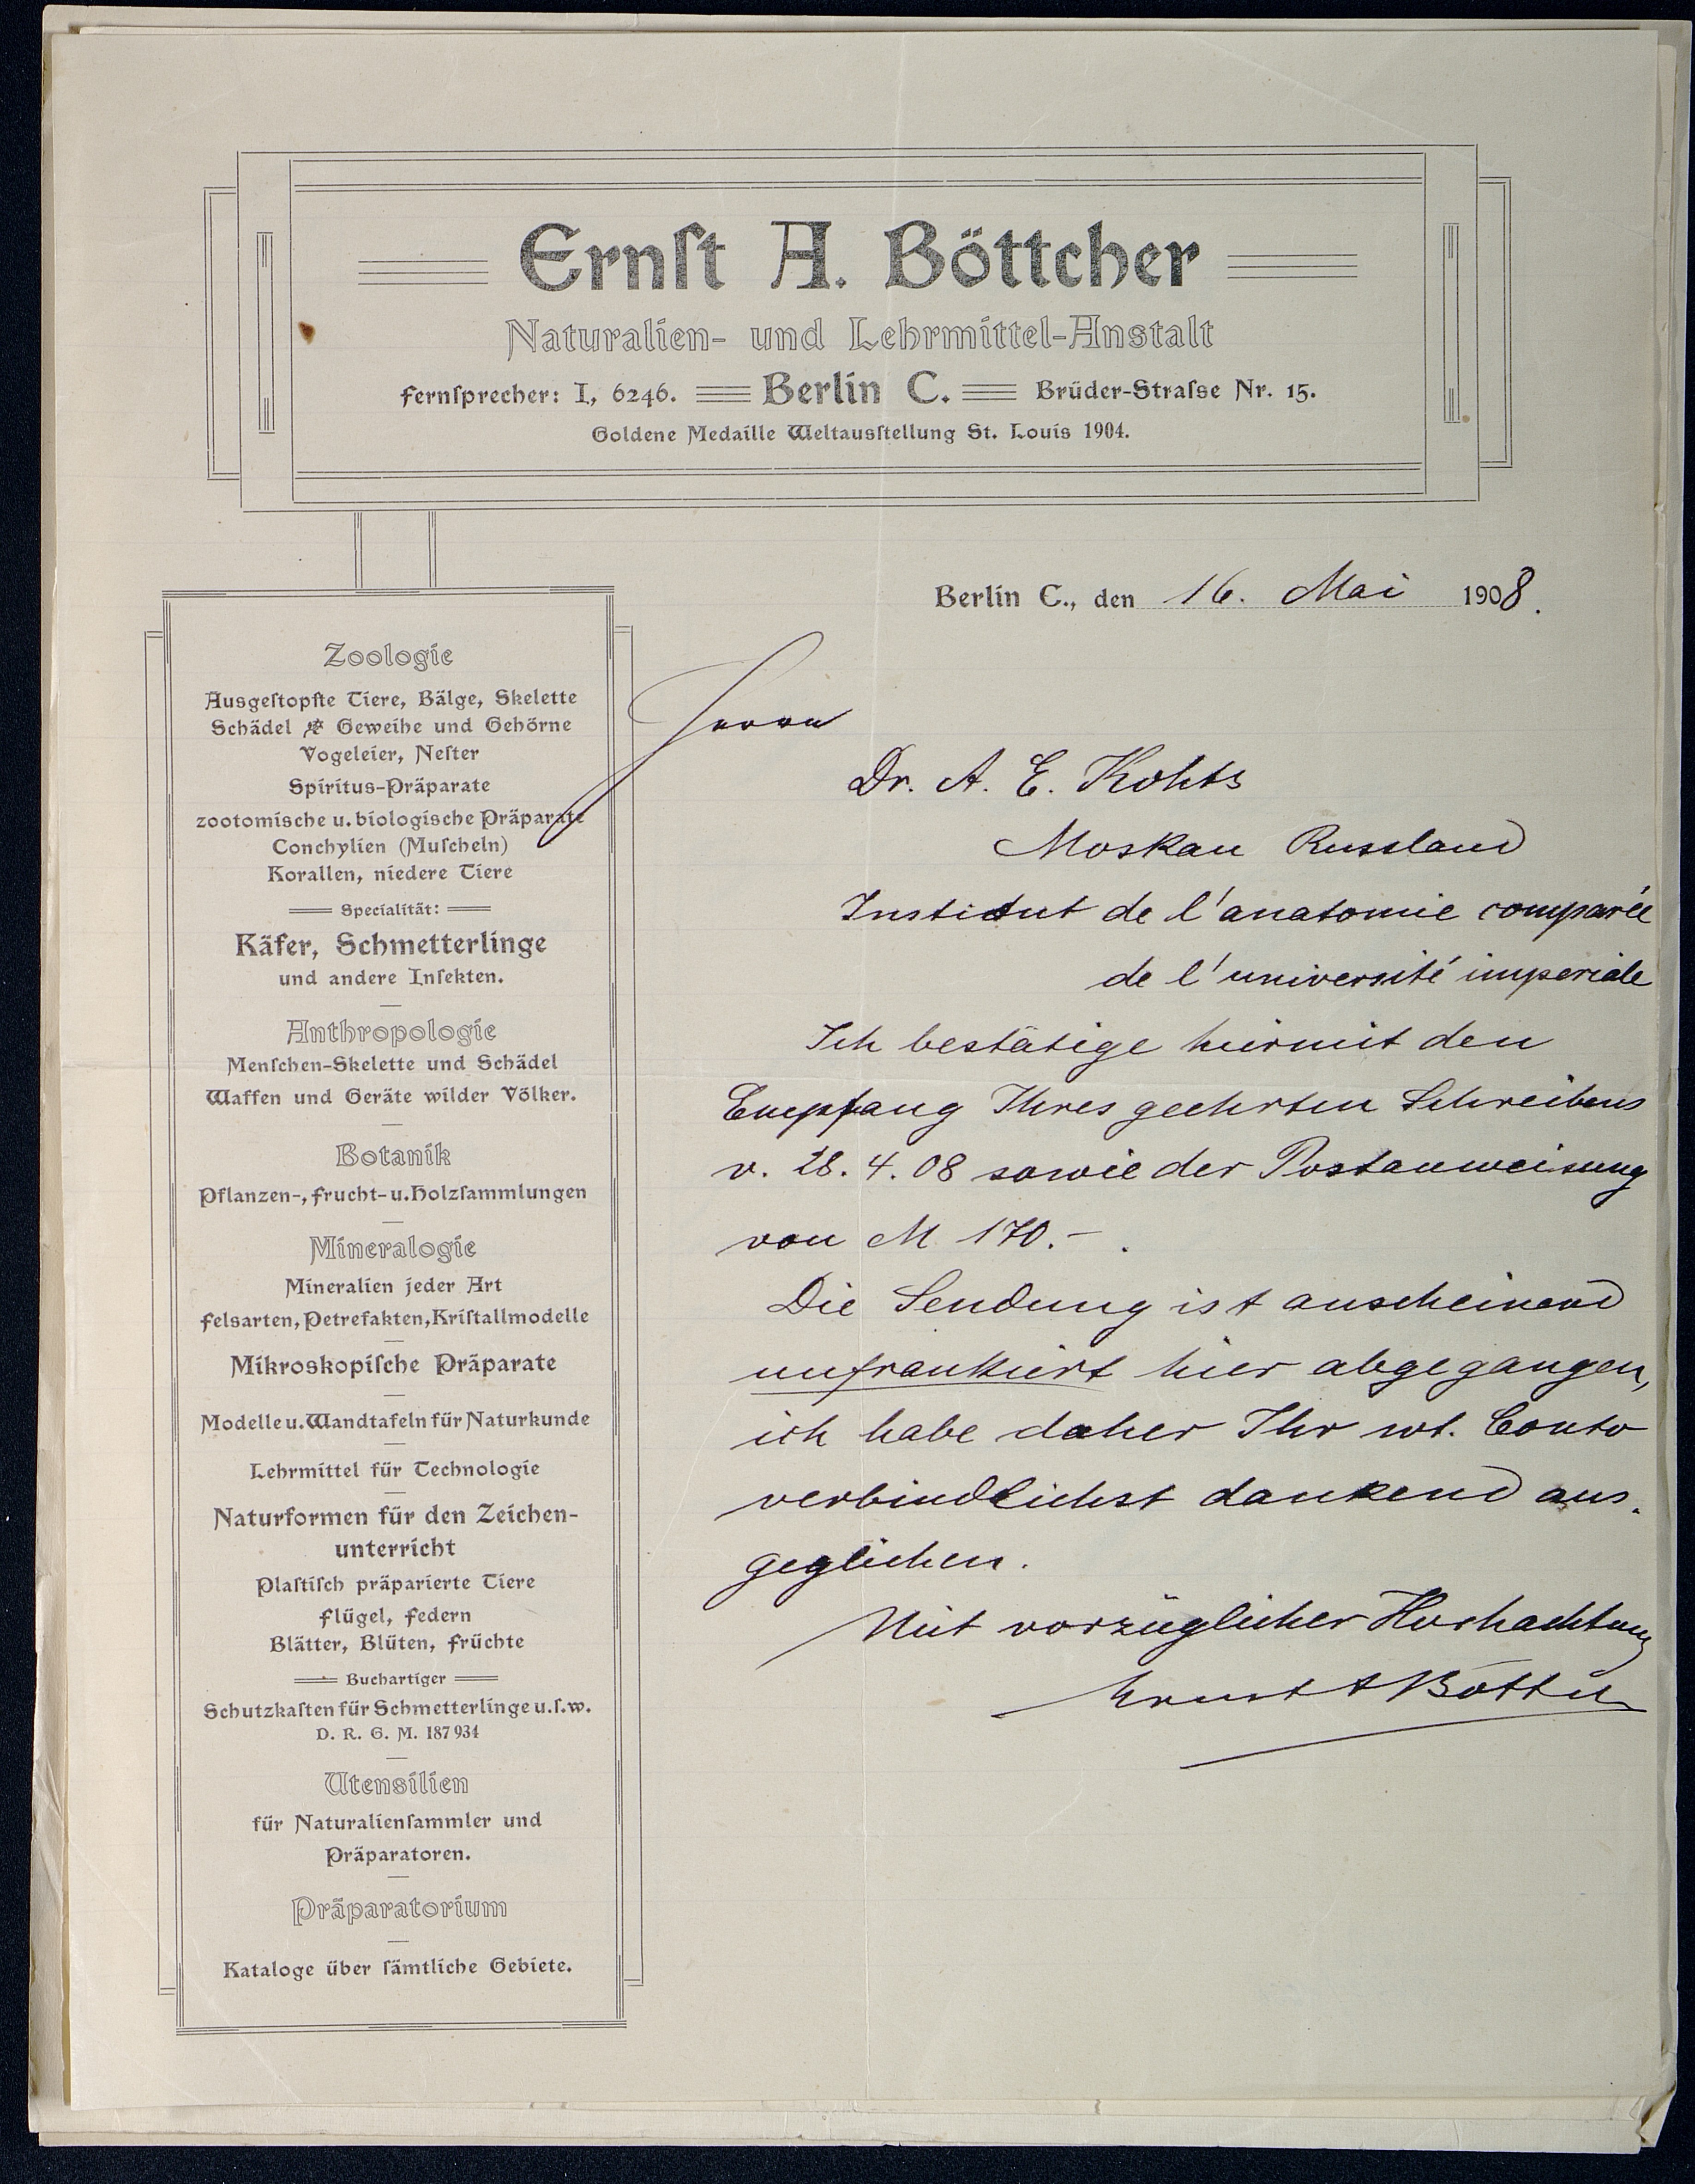 Ernſt A. Böttcher
Naturalien- und Lehrmittel-Anstalt
Fernſprecher: I, 6246. Berlin C. Brüder-Straſse Nr. 15.
Goldene Medaille Weltausſtellung St. Louis 1904.
Berlin C., den 16. Mai 1908.
Zoologie
Ausgeſtopfte Tiere, Bälge, Skelette
Schädel Geweihe und Gehörne
Vogeleier, Neſter
Spiritus-Präparate
zootomische u. biologische Präparate
Conchylien (Muſcheln)
Korallen, niedere Tiere
Specialität:
Käfer, Schmetterlinge
und andere Inſekten.
Anthropologie
Menſchen-Skelette und Schädel
Waffen und Geräte wilder Völker.
Botanik
Pflanzen-, Frucht- u. Holzſammlungen
Mineralogie
Mineralien jeder Art
Felsarten, Petrefakten, Kriſtallmodelle
Mikroskopiſche Präparate
Modelle u. Wandtafeln für Naturkunde
Lehrmittel für Technologie
Naturformen für den Zeichen-
unterricht
Plaſtiſch präparierte Tiere
Flügel, Federn
Blätter, Blüten, Früchte
Buchartiger
Schutzkaſten für Schmetterlinge u.ſ.w.
D. R. G. M. 187934
Utensilien
für Naturalienſammler und
Präparatoren.
Präparatorium
Kataloge über ſämtliche Gebiete.
Herrn
Dr. A. E. Kohts
Moskau Russland
Institut de l'anatomie comparée
de l'université imperiale
Ich bestätige hiermit den
Empfang Ihres geehrten Schreibens
v. 28. 4. 08 sowie der Postanweisung
von M 170.- .
Die Sendung ist anscheinend
unfrankiert hier abgegangen,
ich habe daher Ihr wt. Conto
verbindlichst dankend aus-
geglichen.
Mit vorzüglicher Hochachtung
Ernst A Böttcher